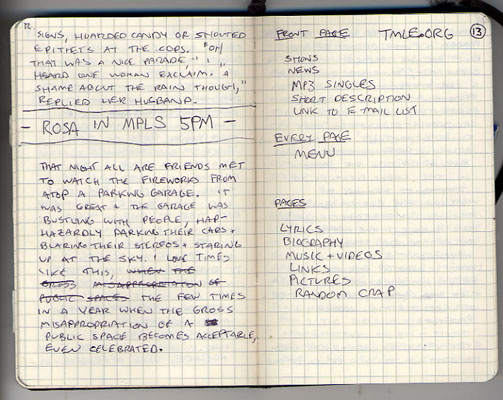 12
SIGNS, HOARDED CANDY OR SHOUTED
EPITHETS AT THE COPS. "OH
THAT WAS A NICE PARADE", I
HEARD ONE WOMAN EXCLAIM. A
SHAME ABOUT THE RAIN THOUGH,"
REPLIED HER HUSBAND.
- ROSA IN MPLS 5PM -
THAT NIGHT ALL ARE FRIENDS MET
TO WATCH THE FIREWORKS FROM
ATOP A PARKING GARAGE. IT
WAS GREAT & THE GARAGE WAS
BUSTLING WITH PEOPLE, HAP-
HAZARDLY PARKING THEIR CARS &
BLARING THEIR STEREOS & STARING
UP AT THE SKY. I LOVE TIMES
LIKE THIS, WHEN THE
GROSS MISAPPROPRIATION OF
PUBLIC SPACES THE FEW TIMES
IN A YEAR WHEN THE GROSS
MISAPPROPRIATION OF A
PUBLIC SPACE BECOMES ACCEPTABLE,
EVEN CELEBRATED.
FRONT PAGE TMLE.ORG 13
SHOWS
NEWS
MP3 SINGLES
SHORT DESCRIPTION
LINK TO E-MAIL LIST
EVERY PAGE
MENU
PAGES
LYRICS
BIOGRAPHY
MUSIC + VIDEOS
LINKS
PICTURES
RANDOM CRAP